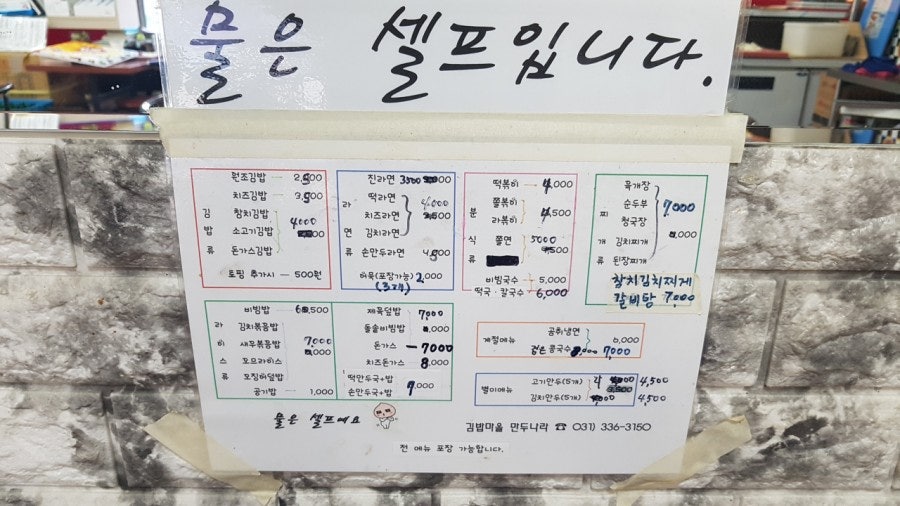 물은 셀프입니다.
김밥류
원조김밥 2,500
치즈김밥 3,500
참치김밥
소고기김밥
4000
돈가스김밥
토핑 추가시 500원
라면
진라면 3500
떡라면
치즈라면
김치라면
4,000
손만두라면
어묵(포장가능) 2,000
(3개)
분식류
떡볶이 4,000
쫄볶이
라볶이
4,500
쫄면 5000
비빔국수 5,000
떡국·칼국수 6,000
찌개류
육개장
순두부
청국장
김치찌개
된장찌개
7,000
참치김치찌게
갈비탕 7,000
라이스류
비빔밥
김치볶음밥
새우볶음밥
오므라이스
오징어덮밥
7,000
공기밥 1,000
제육덮밥 7,000
돌솥비빔밥
돈가스 7000
치즈돈가스 8,000
떡만두국+밥
손만두국+밥
계절메뉴
공취냉면 6,000
검은 콩국수 7,000
별미메뉴
고기만두(5개) 4,500
김치만두(5개) 4,500
물은 셀프예요
김밥마을 만두나라 ☎ 031) 336-3150
전 메뉴 포장 가능합니다.